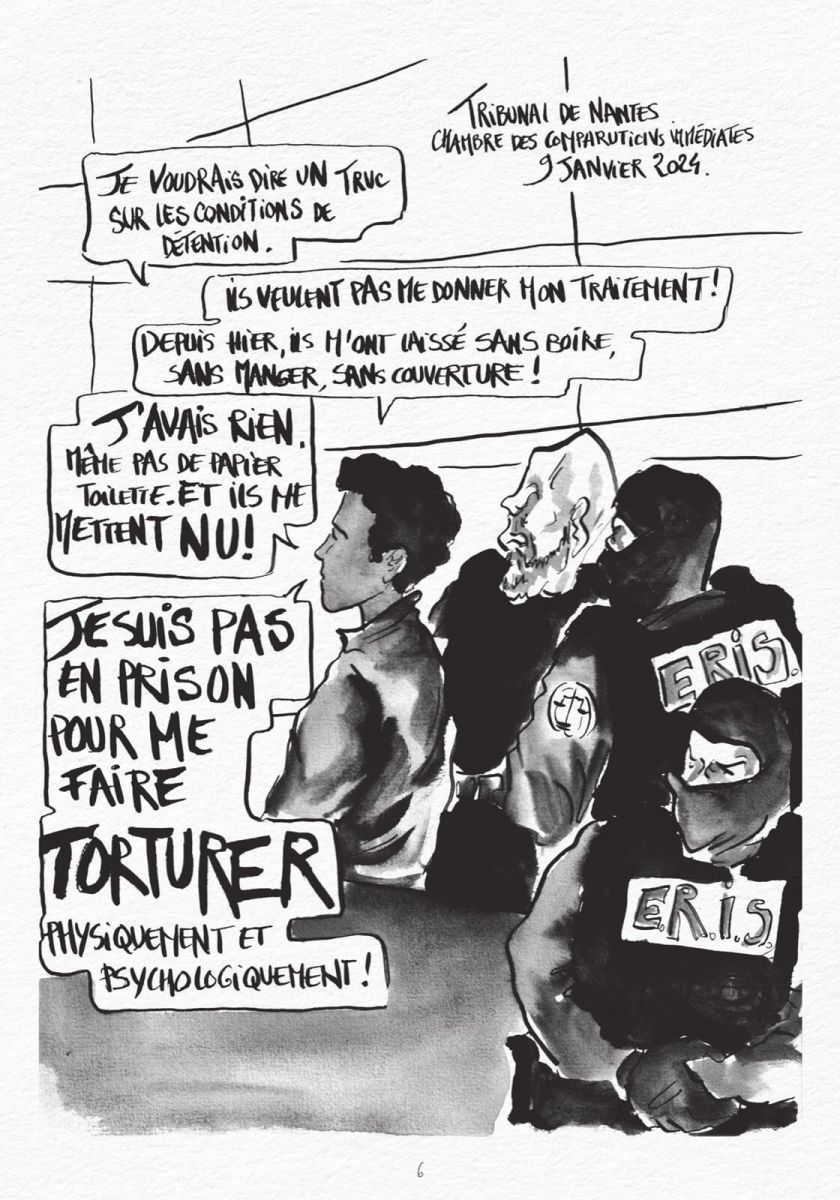 TRIBUNAL DE NANTES.
CHAMBRE DES COMPARUTIONS IMMÉDIATES
9 JANVIER 2024.
JE VOUDRAIS DIRE UN TRUC
SUR LES CONDITIONS DE
DÉTENTION.
ILS VEULENT PAS ME DONNER MON TRAITEMENT !
DEPUIS HIER, ILS M'ONT LAISSÉ SANS BOIRE,
SANS MANGER, SANS COUVERTURE !
J'AVAIS RIEN.
MÊME PAS DE PAPIER
TOILETTE. ET ILS ME
METTENT NU !
JE SUIS PAS
EN PRISON
POUR ME
FAIRE
TORTURER
PHYSIQUEMENT ET
PSYCHOLOGIQUEMENT !
E.R.I.S.
E.R.I.S.
6